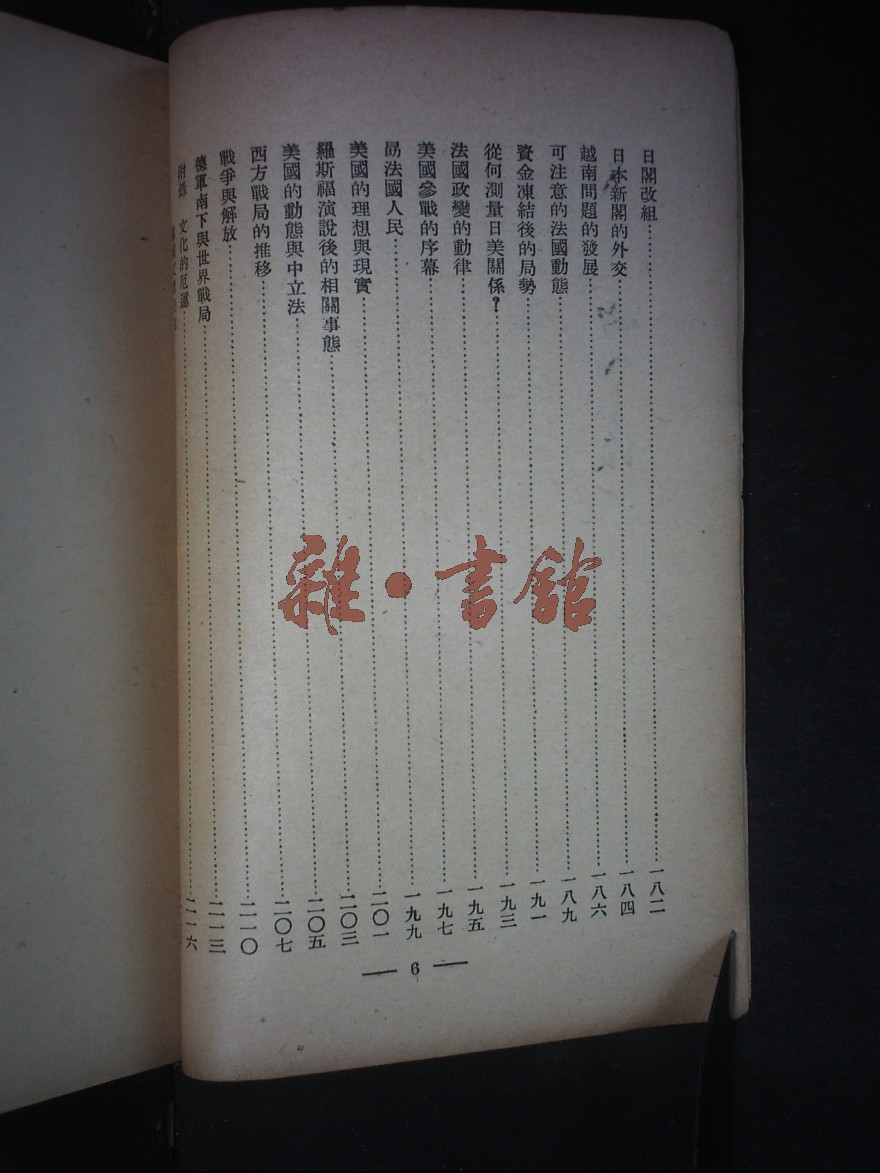 日閣改組……一八二
日本新閣的外交……一八四
越南問題的發展……一八六
可注意的法國動態……一八九
資金凍結後的局勢……一九一
從何測量日美關係？……一九三
法國政變的動律……一九五
美國參戰的序幕……一九七
勗法國人民……一九九
美國的理想與現實……二〇一
羅斯福演說後的相關事態……二〇三
美國的動態與中立法……二〇五
西方戰局的推移……二〇七
戰爭與解放……二一〇
德軍南下與世界戰局……二一三
附錄 文化的厄運……二一六
— 6 —
雜·書館